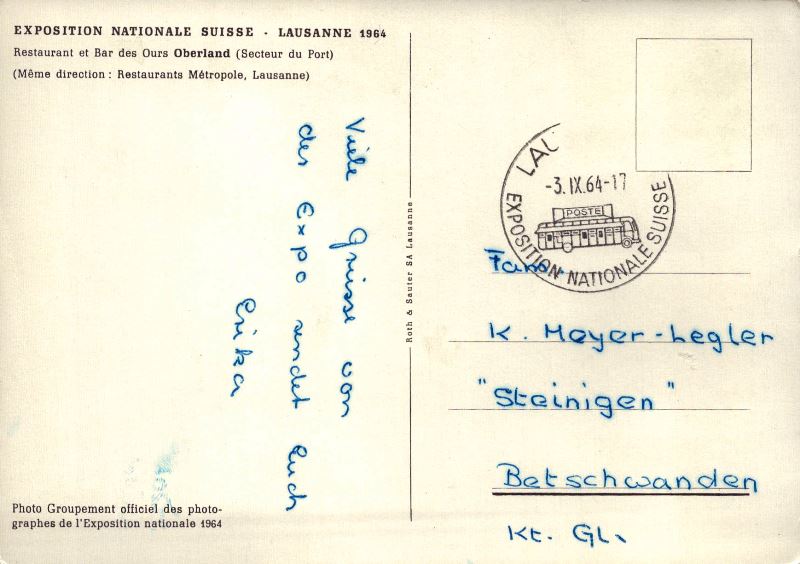 EXPOSITION NATIONALE SUISSE · LAUSANNE 1964
Restaurant et Bar des Ours Oberland (Secteur du Port)
(Même direction : Restaurants Métropole, Lausanne)
Viele Grüsse von
der Expo sendet Euch
Erika
Photo Groupement officiel des photo-
graphes de l'Exposition nationale 1964
Roth & Sauter SA Lausanne
LAU
-3.IX.64-17
POSTE
EXPOSITION NATIONALE SUISSE
Fam.
K. Meyer-Legler
"Steinigen"
Betschwanden
Kt. Gl.